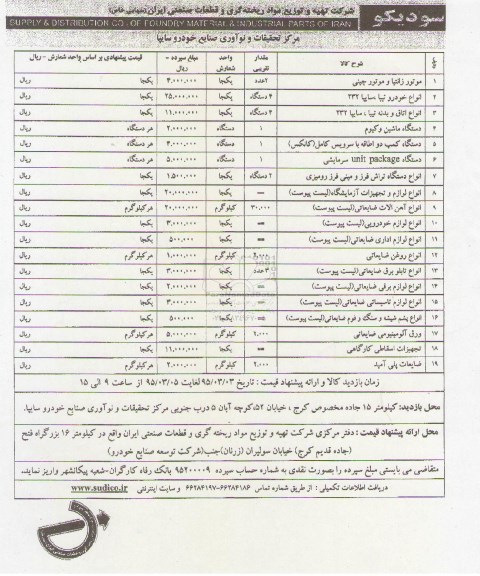 سودیکو
شرکت تهیه و توزیع مواد ریخته گری و قطعات صنعتی ایران (سهامی خاص)
SUPPLY & DISTRIBUTION CO. OF FOUNDRY MATERIAL & INDUSTRIAL PARTS OF IRAN
مرکز تحقیقات و نوآوری صنایع خودرو سایپا
شرح کالا مقدار تقریبی واحد شمارش مبلغ سپرده - ریال قیمت پیشنهادی بر اساس واحد شمارش - ریال
۱ موتور زانتیا و موتور چینی ۲عدد یکجا ۴،۰۰۰،۰۰۰ یکجا ریال
۲ انواع خودرو تیبا ،سایپا ۲۳۲ ۴ دستگاه یکجا ۲۵،۰۰۰،۰۰۰ یکجا ریال
۳ انواع اتاق و بدنه تیبا ، سایپا ۲۳۲ ۲ دستگاه یکجا ۱۱،۰۰۰،۰۰۰ یکجا ریال
۴ دستگاه ماشین وکیوم ۱ دستگاه ۲،۰۰۰،۰۰۰ هر دستگاه ریال
۵ دستگاه کمپ دو اطاقه با سرویس کامل(کانکس) ۱ دستگاه ۴،۰۰۰،۰۰۰ هر دستگاه ریال
۶ دستگاه unit package سرمایشی ۱ دستگاه ۵،۰۰۰،۰۰۰ هر دستگاه ریال
۷ انواع دستگاه تراش فرز و مینی فرز رومیزی ۲ دستگاه یکجا ۱،۵۰۰،۰۰۰ یکجا ریال
۸ انواع لوازم و تجهیزات آزمایشگاه(لیست پیوست) — یکجا ۲۰،۰۰۰،۰۰۰ یکجا ریال
۹ انواع آهن آلات ضایعاتی(لیست پیوست) ۳۰،۰۰۰ کیلوگرم ۲۰،۰۰۰،۰۰۰ هرکیلوگرم ریال
۱۰ انواع لوازم خودرویی(لیست پیوست) — یکجا ۳،۰۰۰،۰۰۰ یکجا ریال
۱۱ انواع لوازم اداری ضایعاتی(لیست پیوست) — یکجا ۵۰۰،۰۰۰ یکجا ریال
۱۲ انواع روغن ضایعاتی کیلوگرم ۱،۰۰۰،۰۰۰ هرکیلوگرم ریال
۱۳ انواع تابلو برق ضایعاتی(لیست پیوست) ۳عدد یکجا ۳،۰۰۰،۰۰۰ یکجا ریال
۱۴ انواع لوازم برقی ضایعاتی(لیست پیوست) — یکجا ۲،۰۰۰،۰۰۰ یکجا ریال
۱۵ انواع لوازم تاسیساتی ضایعاتی(لیست پیوست) — یکجا ۳،۰۰۰،۰۰۰ یکجا ریال
۱۶ انواع پشم شیشه و سنگ و فوم ضایعاتی(لیست پیوست) — یکجا یکجا ریال
۱۷ ورق آلومینیومی ضایعاتی ۱،۰۰۰ کیلوگرم ۵،۰۰۰،۰۰۰ هرکیلوگرم ریال
۱۸ تجهیزات اسقاطی کارگاهی — یکجا ۱۱،۰۰۰،۰۰۰ یکجا ریال
۱۹ ضایعات پلی آمید ۲،۰۰۰ کیلوگرم ۲،۰۰۰،۰۰۰ هرکیلوگرم ریال
زمان بازدید کالا و ارائه پیشنهاد قیمت : تاریخ ۹۵/۰۳/۰۳ لغایت ۹۵/۰۳/۰۵ از ساعت ۹ الی ۱۵
محل بازدید: کیلومتر ۱۵ جاده مخصوص کرج ، خیابان ۵۲،کوچه آبان ۵ درب جنوبی مرکز تحقیقات و نوآوری صنایع خودرو سایپا.
محل ارائه پیشنهاد قیمت : دفتر مرکزی شرکت تهیه و توزیع مواد ریخته گری و قطعات صنعتی ایران واقع در کیلومتر ۱۶ بزرگراه فتح
(جاده قدیم کرج) خیابان سولیران (زرنان)جنب(شرکت توسعه صنایع خودرو)
متقاضی می بایستی مبلغ سپرده را بصورت نقدی به شماره حساب سپرده ۹۵۲۰۰۰۰۹ بانک رفاه کارگران-شعبه پیکانشهر واریز نماید.
دریافت اطلاعات تکمیلی : از طریق شماره تماس ۶۶۲۸۴۱۸۶-۶۶۲۸۴۱۹۷ و سایت اینترنتی www.sudico.ir